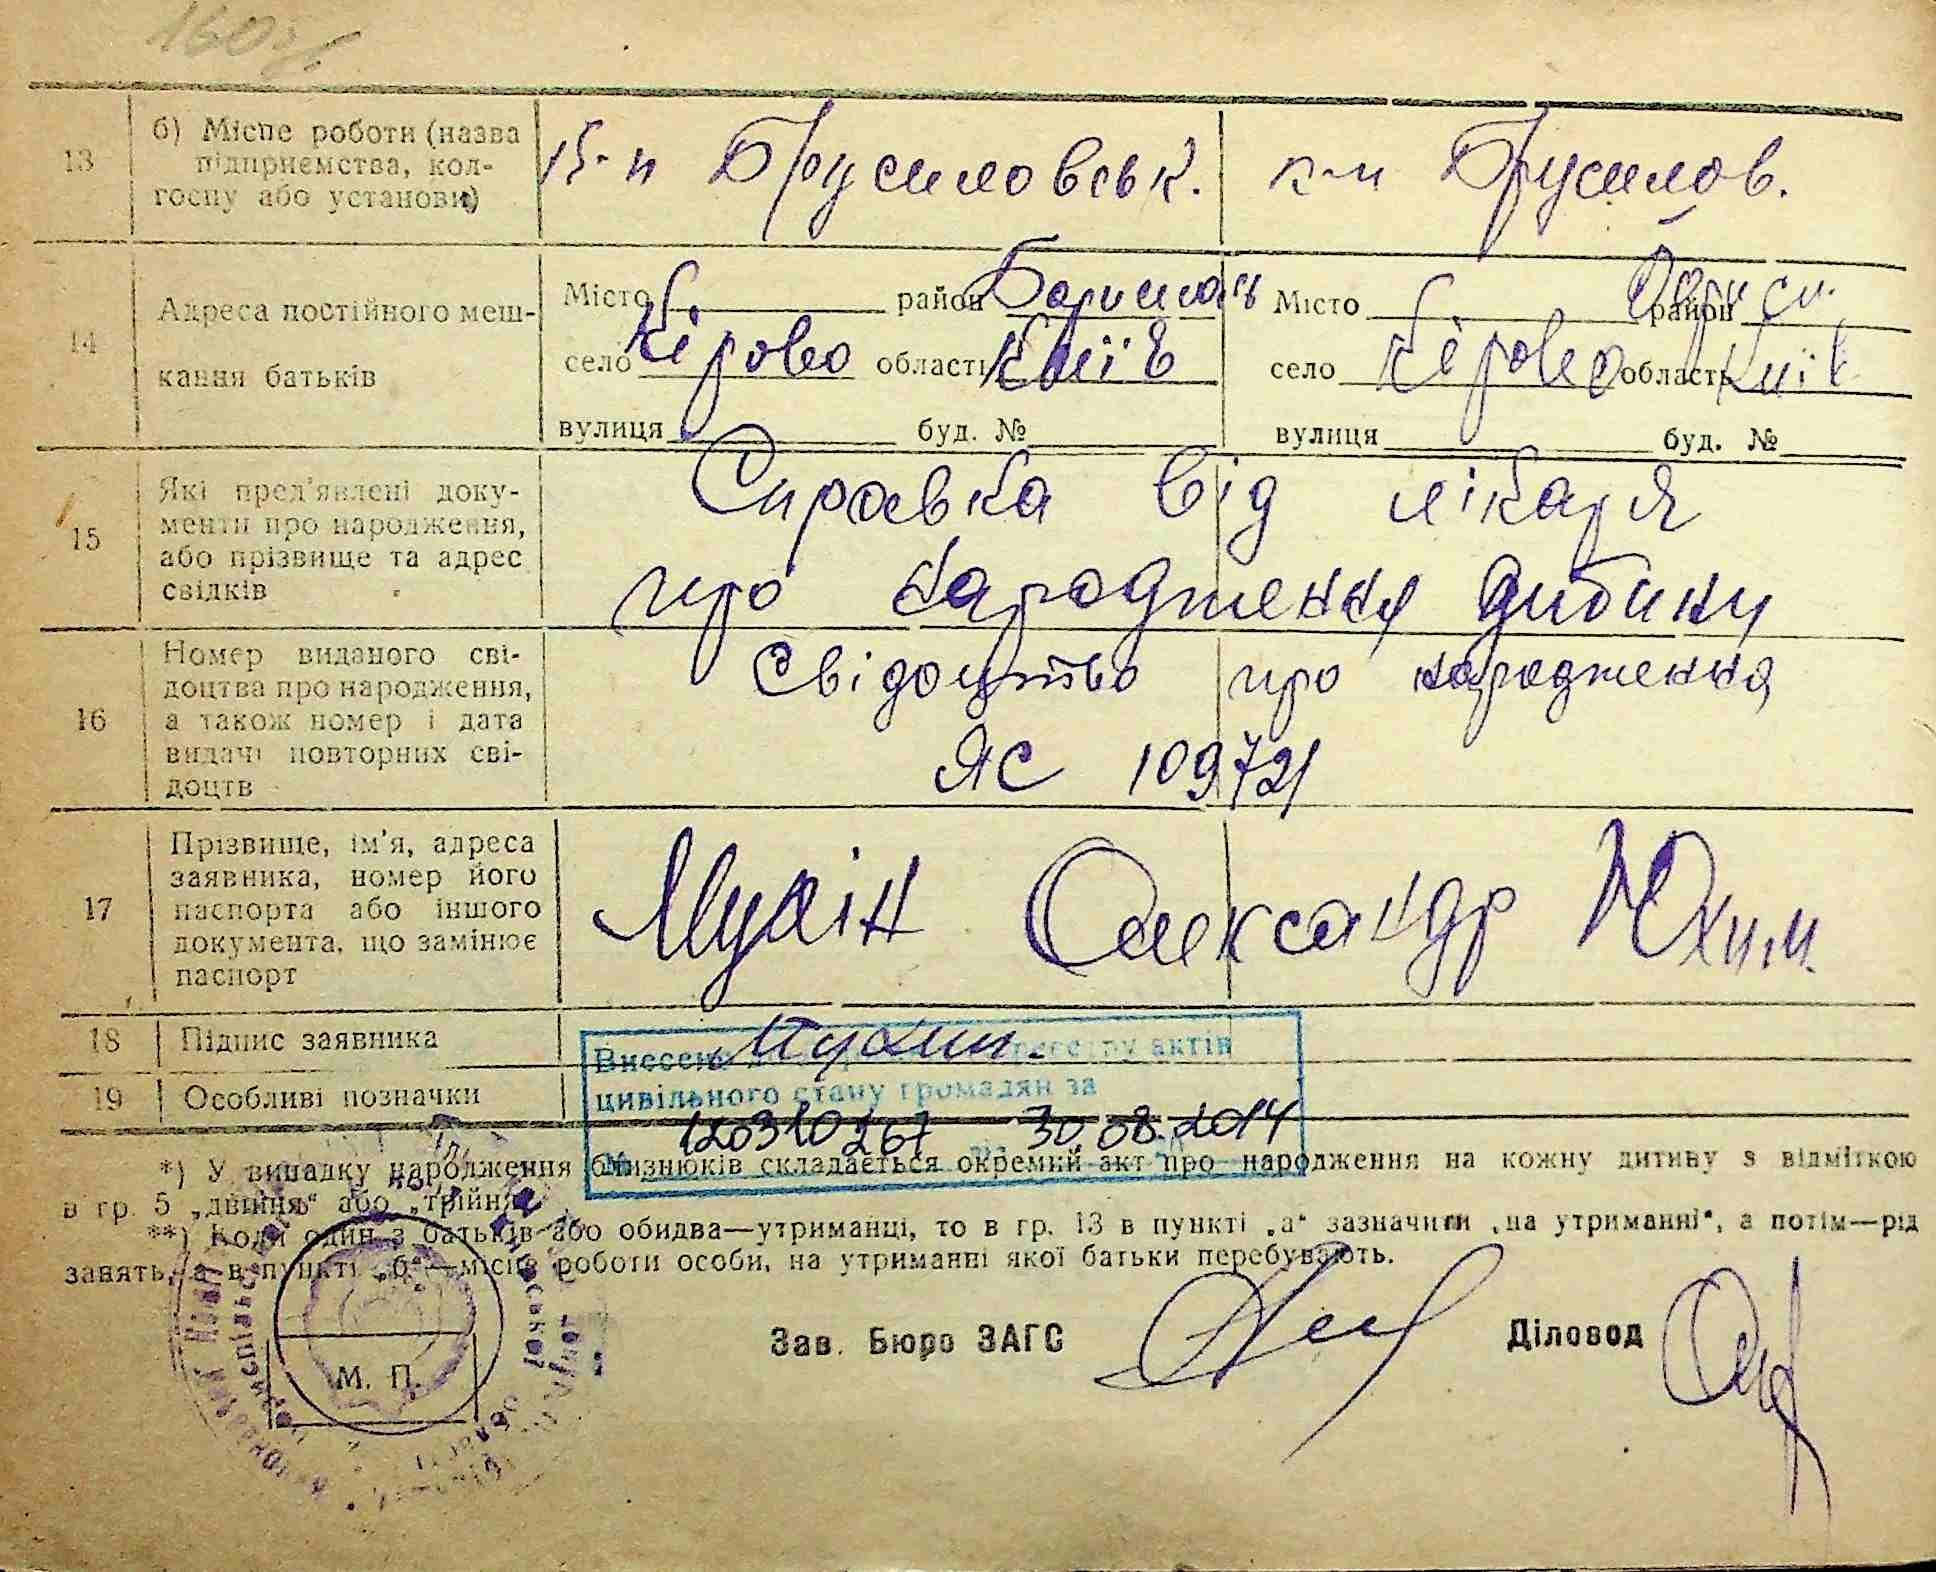 13 б) Місце роботи (назва
підприємства, кол-
госпу або установи)
к-п Брусиловськ. к-п Брусилов.
14 Адреса постійного меш-
кання батьків
Місто район Бориспіль Місто район Борисп.
село Кірово область Київ село Кірово область Київ
вулиця буд. № вулиця буд. №
15 Які пред'явлені доку-
менти про народження,
або прізвище та адрес
свідків
Справка від лікаря
про народження дитини
16 Номер виданого сві-
доцтва про народження,
а також номер і дата
видачі повторних сві-
доцтв
Свідоцтво про народження
ЯС 109721
17 Прізвище, ім'я, адреса
заявника, номер його
паспорта або іншого
документа, що замінює
паспорт
Мухін Олександр Юхим.
18 Підпис заявника Мухин.
19 Особливі позначки
Внесено реєстру актів
цивільного стану громадян за
120310267 30.08.2014
*) У випадку народження близнюків складається окремий акт про народження на кожну дитину з відміткою
в гр. 5 „двійня“ або „трійня“.
**) Коли один з батьків або обидва—утриманці, то в гр. 13 в пункті „а“ зазначити „на утриманні“, а потім—рід
занять, а в пункті „б“—місце роботи особи, на утриманні якої батьки перебувають.
Зав. Бюро ЗАГС Діловод
М. П.